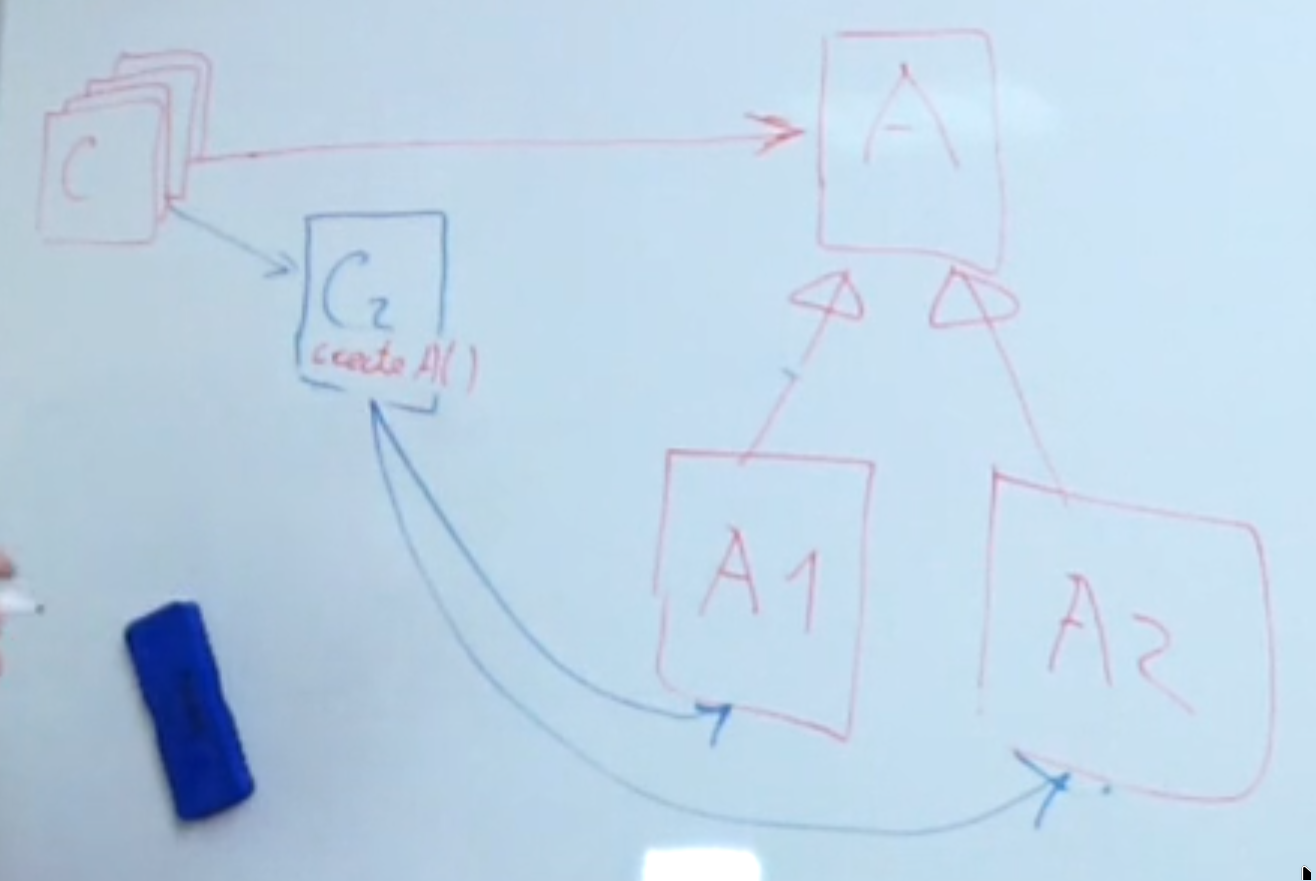 C
A
C2
create A()
A1
A2